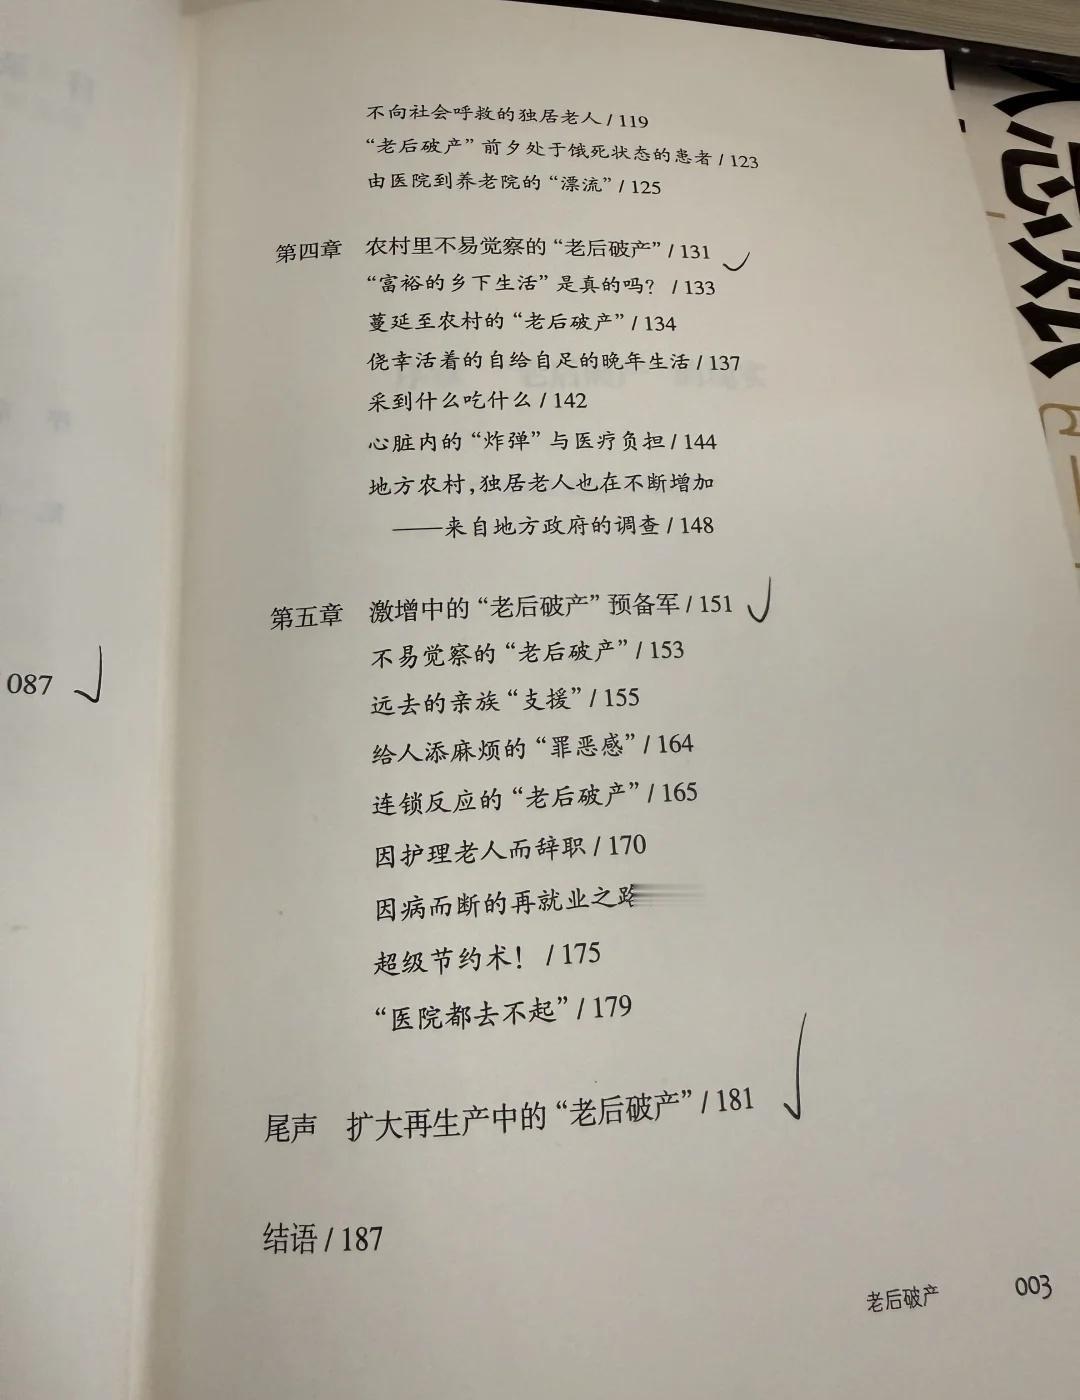 不向社会呼救的独居老人 / 119
“老后破产”前夕处于饿死状态的患者 / 123
由医院到养老院的“漂流” / 125
第四章 农村里不易觉察的“老后破产” / 131
“富裕的乡下生活”是真的吗？ / 133
蔓延至农村的“老后破产” / 134
侥幸活着的自给自足的晚年生活 / 137
采到什么吃什么 / 142
心脏内的“炸弹”与医疗负担 / 144
地方农村，独居老人也在不断增加
——来自地方政府的调查 / 148
第五章 激增中的“老后破产”预备军 / 151
不易觉察的“老后破产” / 153
远去的亲族“支援” / 155
给人添麻烦的“罪恶感” / 164
连锁反应的“老后破产” / 165
因护理老人而辞职 / 170
因病而断的再就业之路
超级节约术！ / 175
“医院都去不起” / 179
尾声 扩大再生产中的“老后破产” / 181
结语 / 187
老后破产 003
087